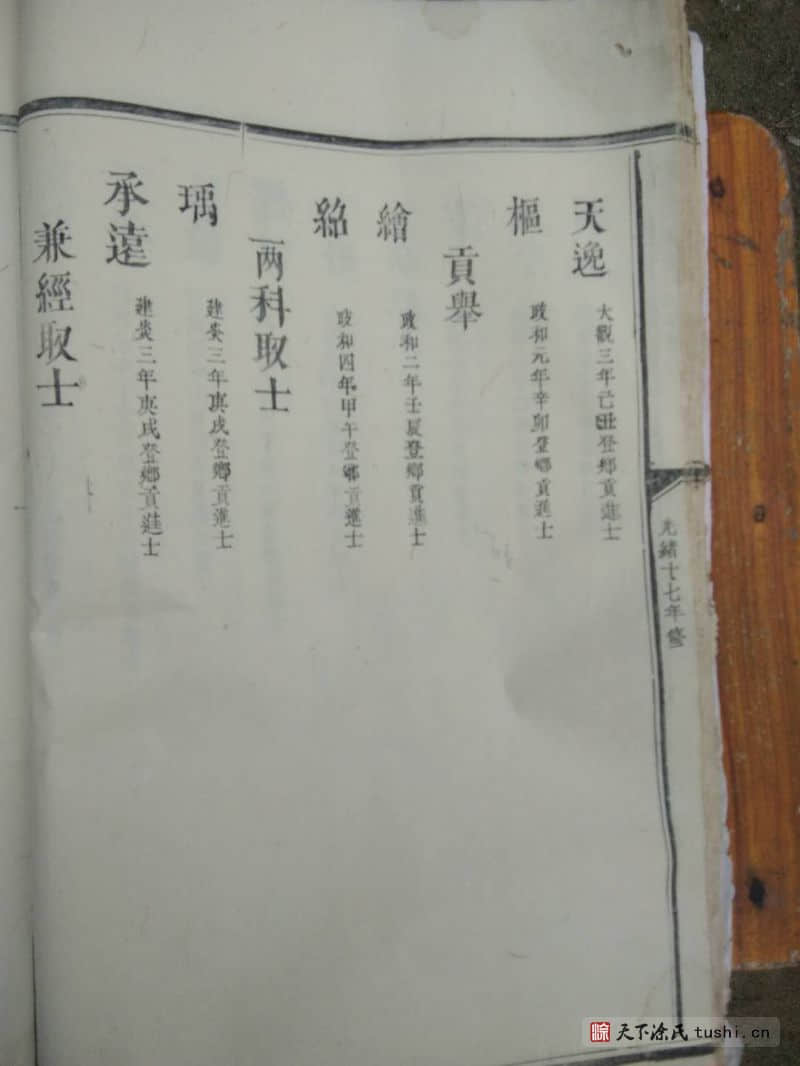 光緒十七年
天逸 大觀三年己丑登鄉貢進士
樞 政和元年辛卯登鄉貢進士
貢舉
繪 政和二年壬辰登鄉貢進士
政和四年甲午登鄉貢進士
兩科取士
瑀 建炎三年庚戌登鄉貢進士
承遠 建炎三年庚戌登鄉貢進士
兼經取士
涂 天下涂氏 tushi.cn